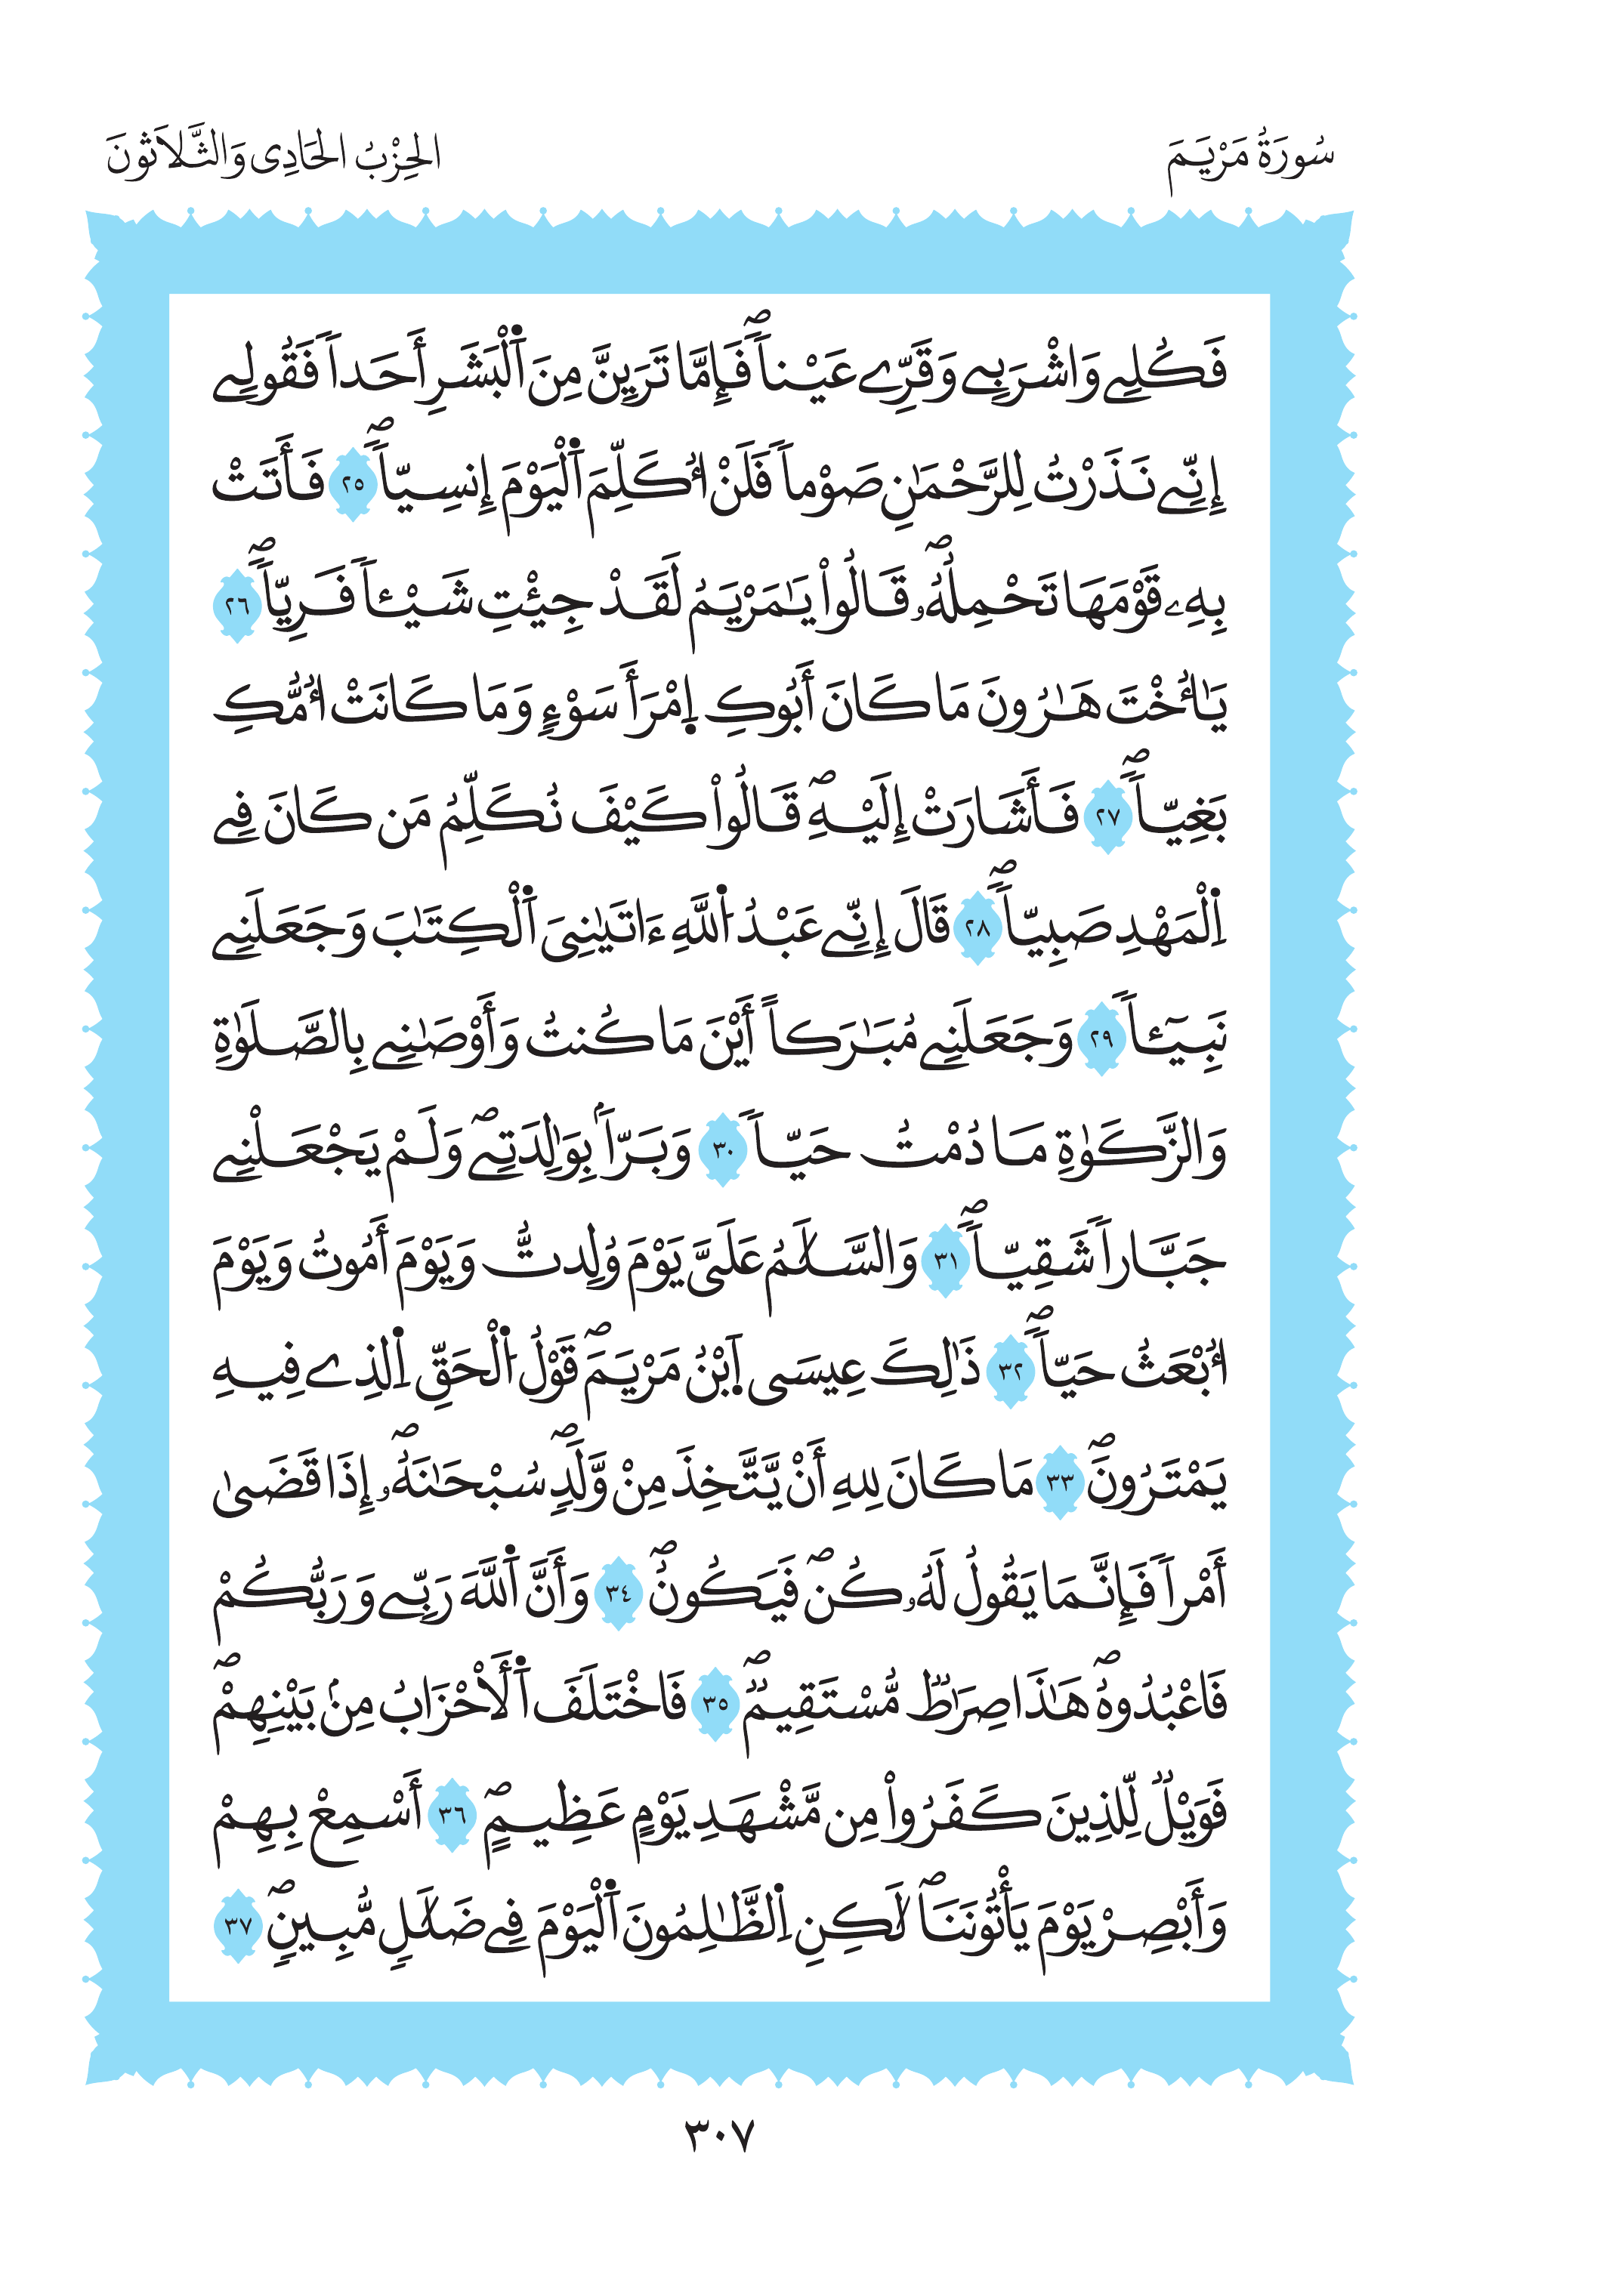 سُورَةُ مَرْيَمَ
الحِزْبُ الحَادِى وَالثَّلَاثُونَ
فَكُلِے وَاشْرَبِے وَقَرِّے عَيْناٗۖ فَإِمَّا تَرَيِنَّ مِنَ اَ۬لْبَشَرِ أَحَداٗ فَقُولِے
إِنِّے نَذَرْتُ لِلرَّحْمَٰنِ صَوْماٗ فَلَنْ ا۟كَلِّمَ اَ۬لْيَوْمَ إِنسِيّاٗۖ ٢٥ فَأَتَتْ
بِهِۦ قَوْمَهَا تَحْمِلُهُۥۖ قَالُواْ يَٰمَرْيَمُ لَقَدْ جِئْتِ شَيْـٔاٗ فَرِيّاٗۖ ٢٦
يَٰأُخْتَ هَٰرُونَ مَا كَانَ أَبُوكِ اِ۪مْرَأَ سَوْءٖ وَمَا كَانَتْ ا۟مُّكِ
بَغِيّاٗۖ ٢٧ فَأَشَارَتْ إِلَيْهِۖ قَالُواْ كَيْفَ نُكَلِّمُ مَن كَانَ فِے
اِ۬لْمَهْدِ صَبِيّاٗۖ ٢٨ قَالَ إِنِّے عَبْدُ اُ۬للَّهِ ءَاتَيٰنِىَ اَ۬لْكِتَٰبَ وَجَعَلَنِے
نَبِيٓـٔاٗ ٢٩ وَجَعَلَنِے مُبَٰرَكاً أَيْنَ مَا كُنتُ وَأَوْصَٰنِے بِالصَّلَوٰةِ
وَالزَّكَوٰةِ مَا دُمْتُ حَيّاٗ ٣٠ وَبَرّاَۢ بِوَٰلِدَتِےۖ وَلَمْ يَجْعَلْنِے
جَبَّاراٗ شَقِيّاٗۖ ٣١ وَالسَّلَٰمُ عَلَىَّ يَوْمَ وُلِدتُّ وَيَوْمَ أَمُوتُ وَيَوْمَ
ا۟بْعَثُ حَيّاٗۖ ٣٢ ذَٰلِكَ عِيسَى اَ۪بْنُ مَرْيَمَۖ قَوْلُ اُ۬لْحَقِّ اِ۬لذِے فِيهِ
يَمْتَرُونَۖ ٣٣ مَا كَانَ لِلهِ أَنْ يَّتَّخِذَ مِنْ وَّلَدٖۖ سُبْحَٰنَهُۥۖ إِذَا قَضَىٰ
أَمْراٗ فَإِنَّمَا يَقُولُ لَهُۥ كُنۖ فَيَكُونُۖ ٣٤ وَأَنَّ اَ۬للَّهَ رَبِّے وَرَبُّكُمْ
فَاعْبُدُوهُۖ هَٰذَا صِرَٰطٞ مُّسْتَقِيمٞۖ ٣٥ فَاخْتَلَفَ اَ۬لْأَحْزَابُ مِنۢ بَيْنِهِمْۖ
فَوَيْلٞ لِّلذِينَ كَفَرُواْ مِن مَّشْهَدِ يَوْمٍ عَظِيمٍۖ ٣٦ أَسْمِعْ بِهِمْ
وَأَبْصِرْ يَوْمَ يَأْتُونَنَاۖ لَٰكِنِ اِ۬لظَّٰلِمُونَ اَ۬لْيَوْمَ فِے ضَلَٰلٖ مُّبِينٖۖ ٣٧
٣٠٧